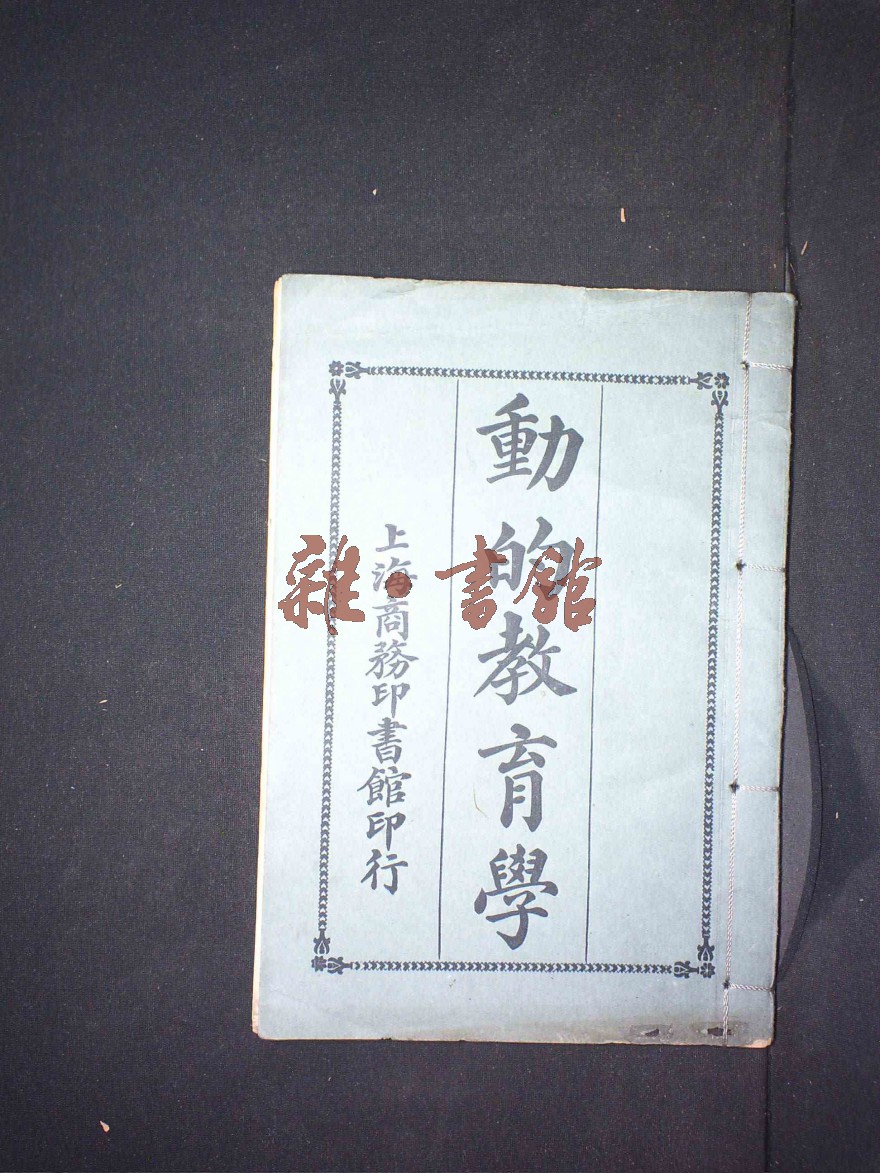 動的教育學
上海商務印書館印行
雜·書館